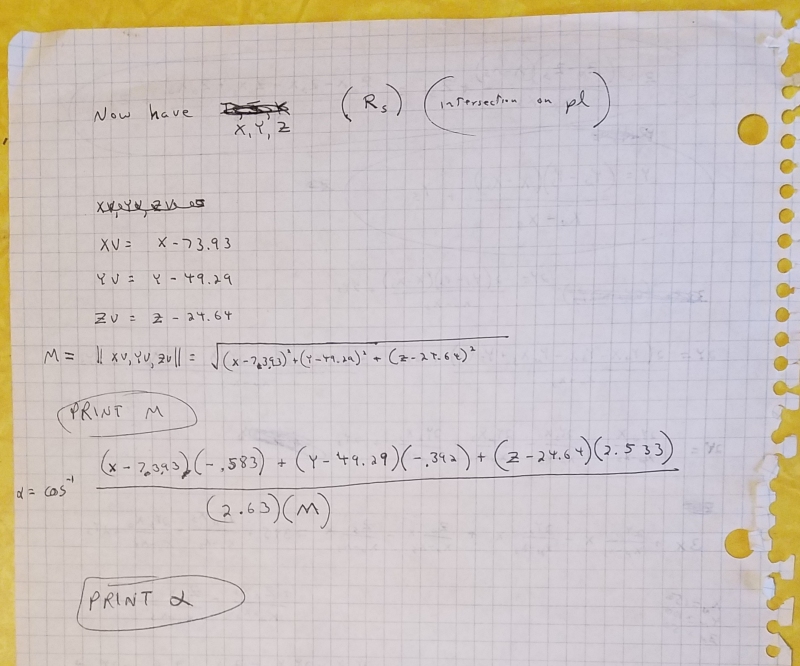 Now have X, Y, Z (Rs) (intersection on pl)
XV = X - 73.93
YV = Y - 49.29
ZV = Z - 24.64
M = || XV, YV, ZV || = √(X - 7393)² + (Y - 49.29)² + (Z - 24.64)²
PRINT M
α = cos⁻¹ (X - 7393)(-.583) + (Y - 49.29)(-.392) + (Z - 24.64)(2.533)
(2.63)(M)
PRINT α